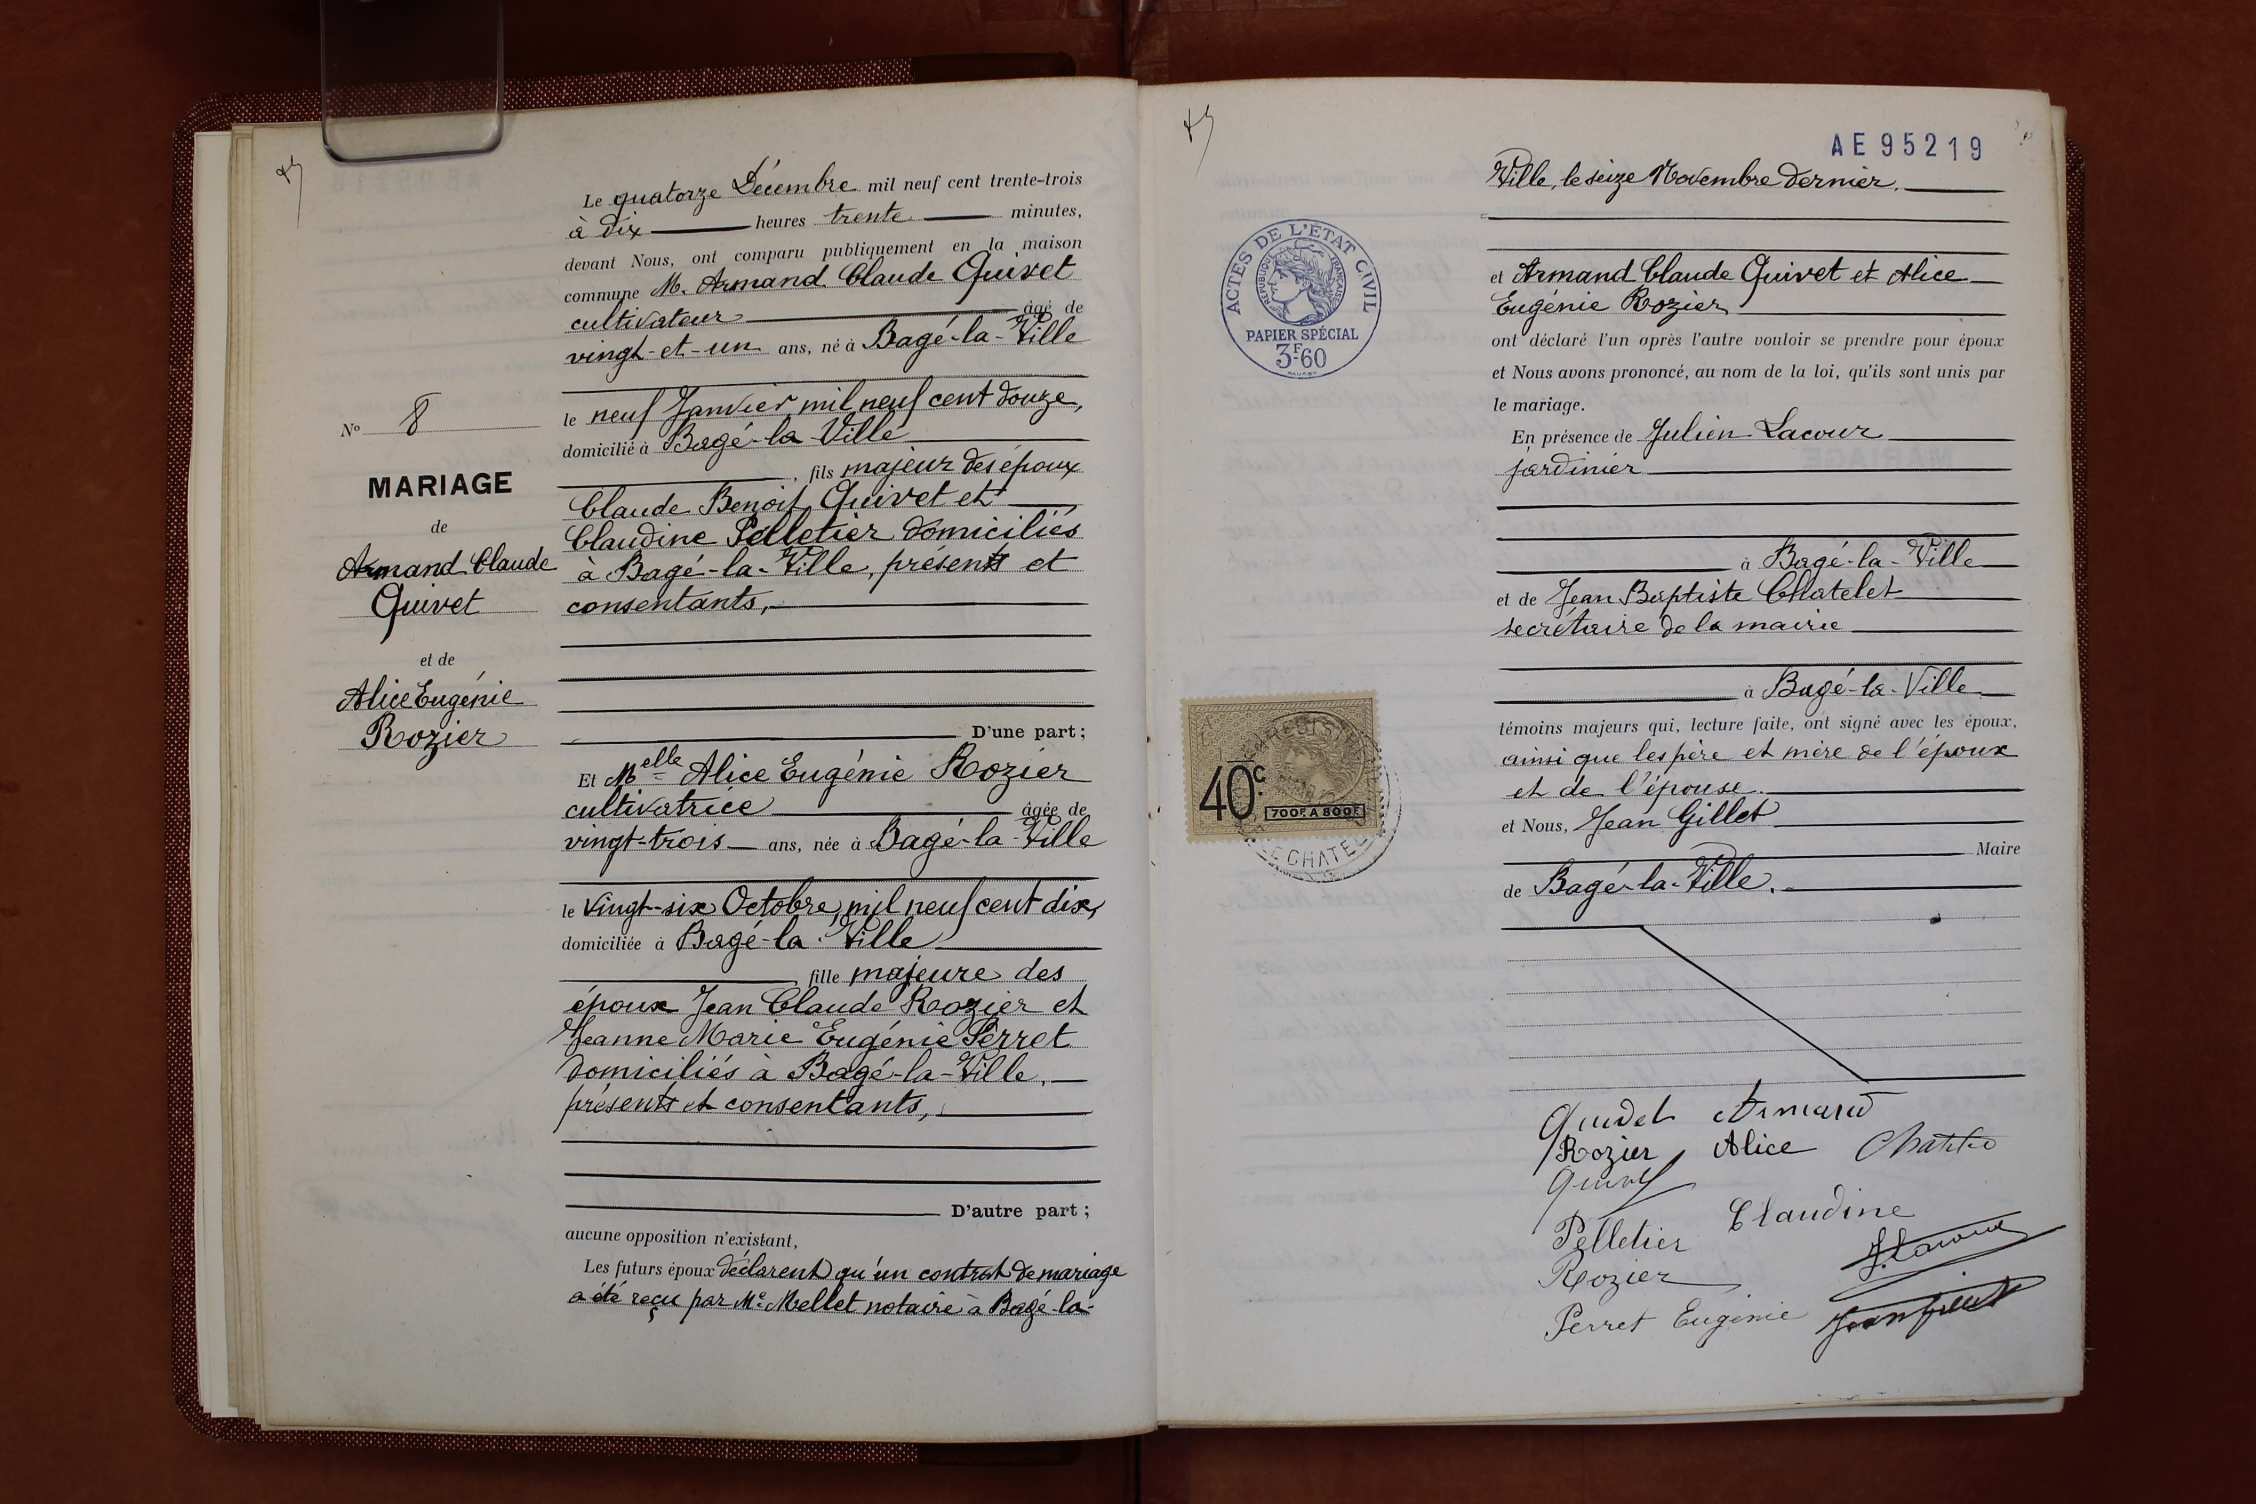 Le quatorze Décembre mil neuf cent trente-trois
à dix heures trente minutes,
devant Nous, ont comparu publiquement en la maison
commune M. Armand Claude Quivet
cultivateur âgé de
vingt-et-un ans, né à Bagé-la-Ville
le neuf Janvier mil neuf cent douze,
domicilié à Bagé-la-Ville
, fils majeur des époux
Claude Benoit Quivet et
Claudine Pelletier domiciliés
à Bagé-la-Ville, présents et
consentants,
D'une part ;
Et Melle Alice Eugénie Rozier
cultivatrice âgée de
vingt-trois ans, née à Bagé-la-Ville
le vingt-six Octobre mil neuf cent dix,
domiciliée à Bagé-la-Ville
fille majeure des
époux Jean Claude Rozier et
Jeanne Marie Eugénie Perret
domiciliés à Bagé-la-Ville,
présents et consentants,
D'autre part ;
aucune opposition n'existant,
Les futurs époux déclarent qu'un contrat de mariage
a été reçu par Me Mellet notaire à Bagé-la-
No 8
MARIAGE
de
Armand Claude
Quivet
et de
Alice Eugénie
Rozier
AE95219
Ville, le seize Novembre dernier.
et Armand Claude Quivet et Alice
Eugénie Rozier
ont déclaré l'un après l'autre vouloir se prendre pour époux
et Nous avons prononcé, au nom de la loi, qu'ils sont unis par
le mariage.
En présence de Julien Lacour
jardinier
à Bagé-la-Ville
et de Jean Baptiste Chatelet
secrétaire de la mairie
à Bagé-la-Ville
témoins majeurs qui, lecture faite, ont signé avec les époux,
ainsi que les père et mère de l'époux
et de l'épouse.
et Nous, Jean Gillet
Maire
de Bagé-la-Ville.
ACTES DE L'ÉTAT CIVIL
RÉPUBLIQUE FRANÇAISE
PAPIER SPÉCIAL
3F60
40c
700F. A 800F.
Quivet Armand
Rozier Alice
Quivet
Pelletier Claudine
Rozier J. Lacour
Perret Eugénie Jean Gillet